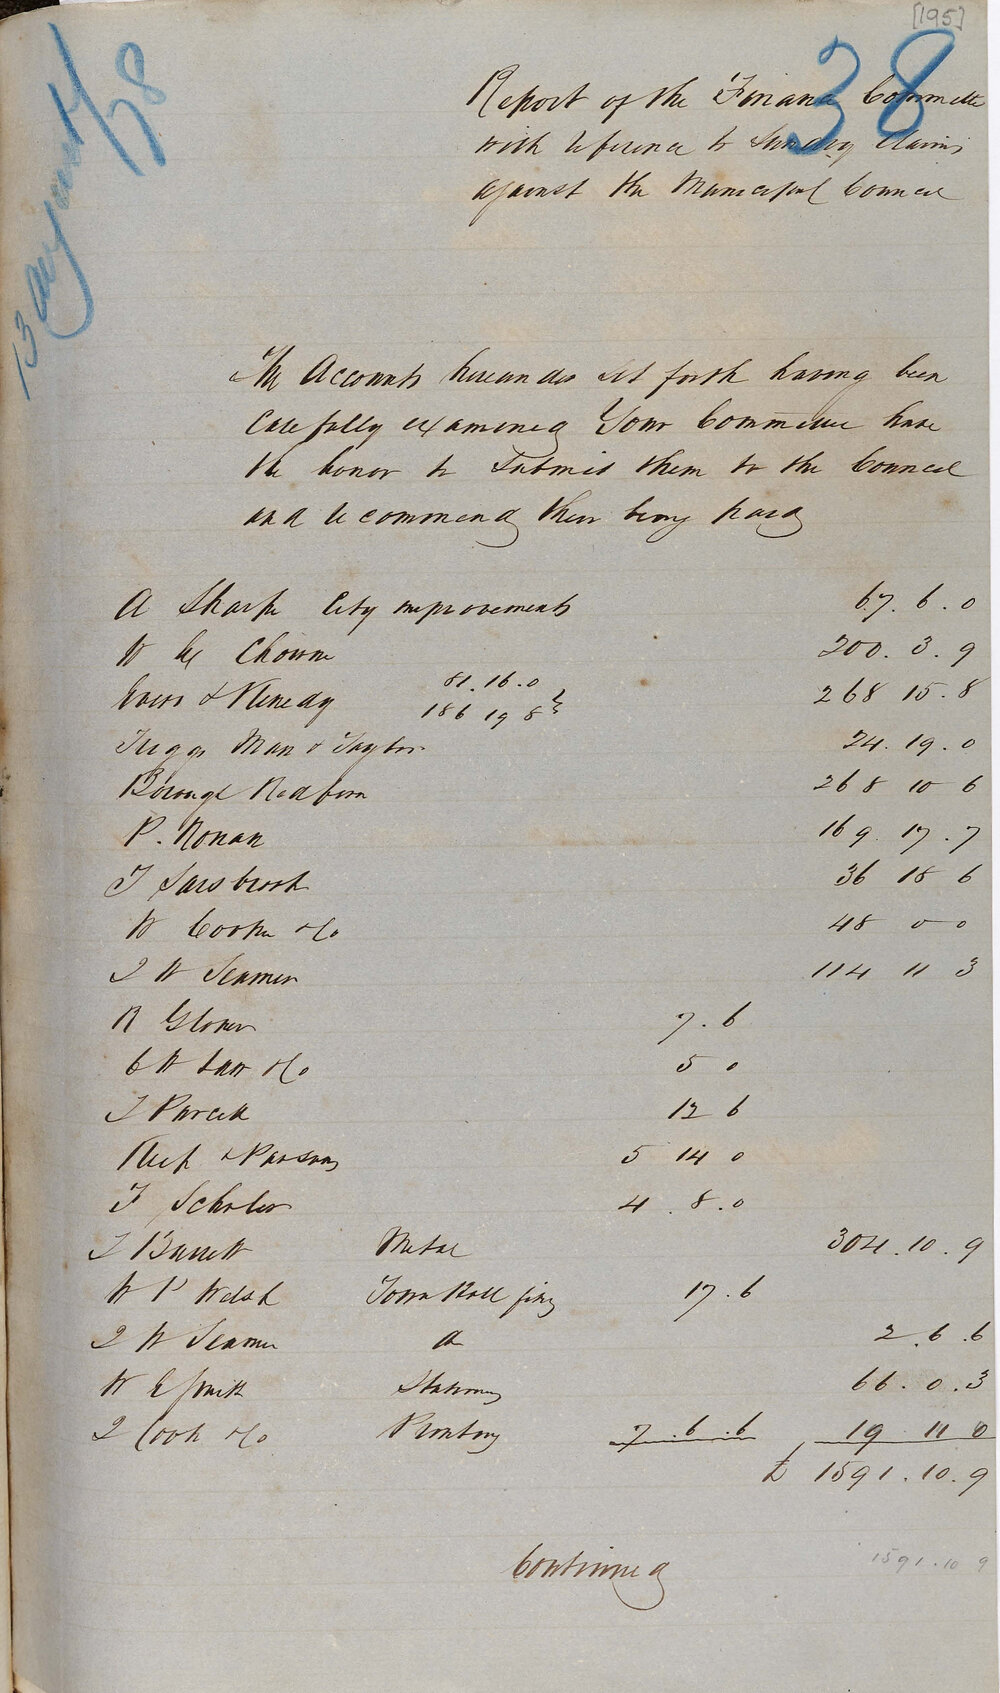 [195]
38
13 August /78
Report of the Finance Committee
with reference to Sundry Claims
against the Municipal Council
The Accounts hereunder set forth having been
Carefully examined Your Committee have
the honor to Submit them to the Council
and recommend their being paid
A Sharpe City improvements 67. 6. 0
W Chowne 200. 3. 9
& Kenedy 81. 16. 0 268 15. 8
186 19 8
Man & Taylor 24. 19. 0
Redfern 268 10 6
P. Ronan 169. 17. 7
36 18 6
W Cooke & Co 48 0 0
J W Seamer 114 11 3
R Glover 7. 6
C W Law & Co 5 0
J Purcell 12 6
Keep & Parsons 5 14 0
F Scholer 4. 8. 0
J Barrett Metal 304. 10. 9
W P Welsh Town Hall 17. 6
J W Seamer do 2. 6. 6
W E Smith Stationery 66. 0. 3
J Cook & Co Printing 7. 6. 6 19 11 0
£ 1591. 10. 9
Continued
1591. 10 9